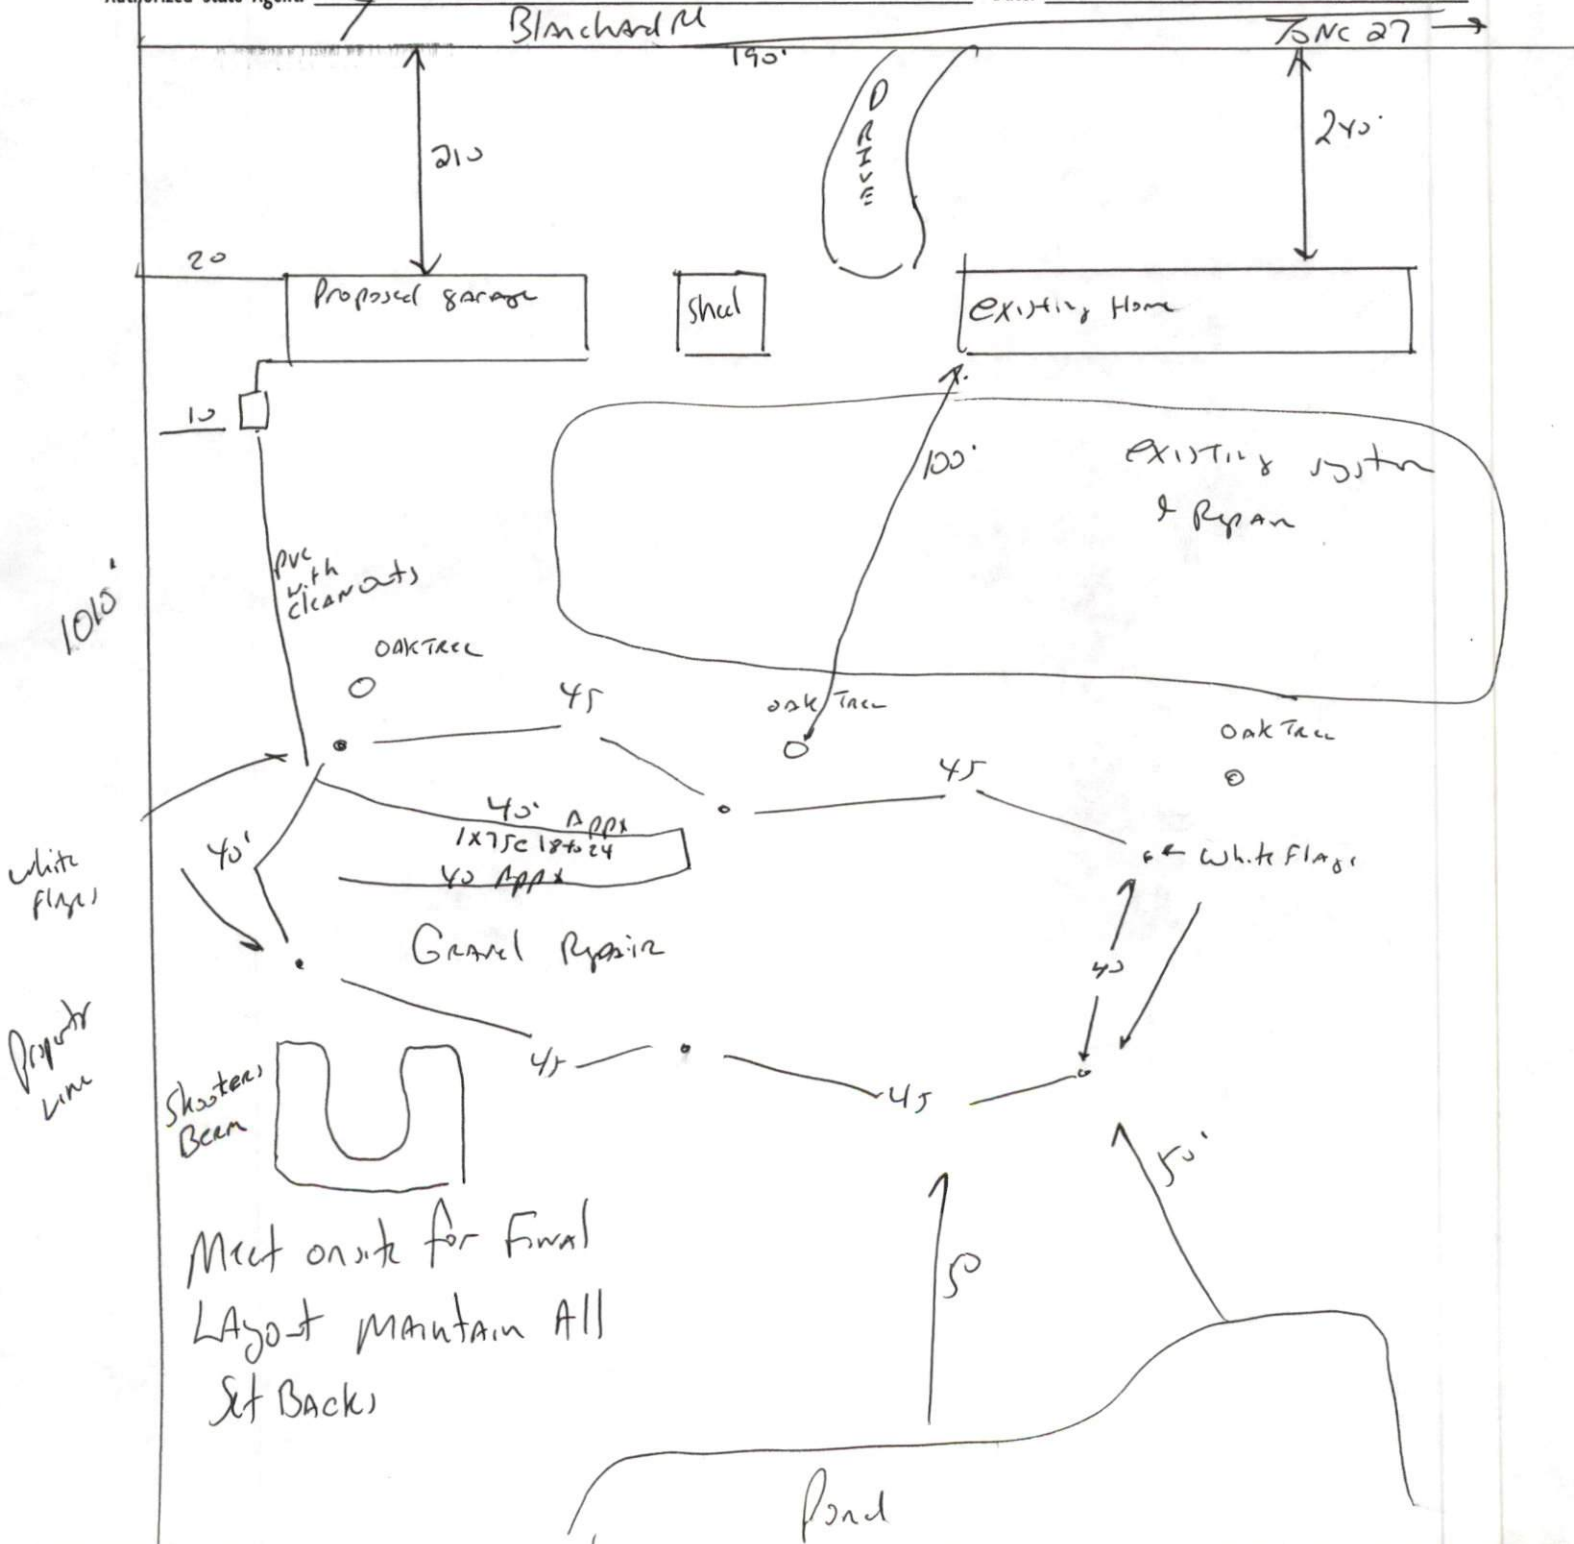 Authorized State Agent
Blanchard Rd
To NC 27
190'
DRIVE
210
240'
20
Proposed garage
Shed
existing Home
10
100'
existing system
& Repair
PVC
with
cleanouts
1010'
OAK TREE
45
oak Tree
Oak Tree
45
40' Appx
1x75c 18 to 24
40 Appx
40'
White Flags
white
flags
Gravel Repair
40
Property
Line
45
45
Shooters
Berm
50'
50
Meet onsite for Final
LAyout MAintAin All
Set BAcks
Pond